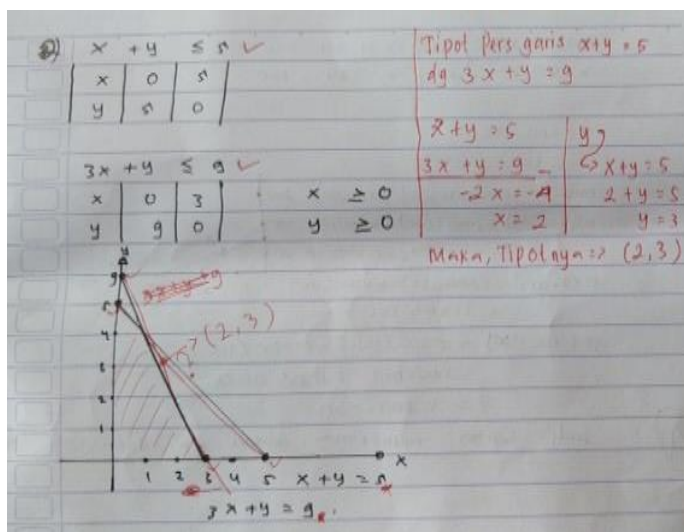 2) x + y ≤ 5 ✓
x | 0 | 5
y | 5 | 0
3x + y ≤ 9 ✓
x | 0 | 3
y | 9 | 0
x ≥ 0
y ≥ 0
Tipot Pers garis x+y = 5
dg 3x + y = 9
x + y = 5
3x + y = 9 -
-2x = -4
x = 2
y
x+y = 5
2 + y = 5
y = 3
Maka, Tipotnya => (2,3)
y
9
5
4
3
2
1
(2,3)
1 2 3 4 5 x + y = 5 x
3x + y = 9